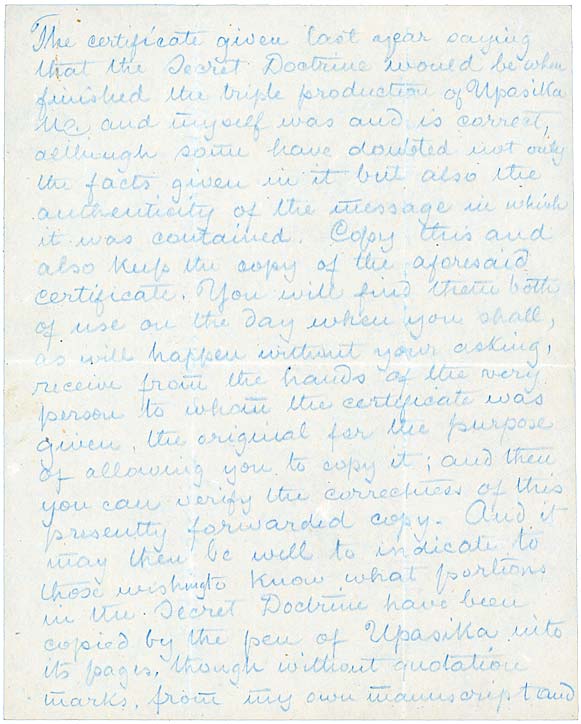 The certificate given last year saying
that the Secret Doctrine would be when
finished the triple production of Upasika
M∴ and myself was and is correct,
although some have doubted not only
the facts given in it but also the
authenticity of the message in which
it was contained. Copy this and
also keep the copy of the aforesaid
certificate. You will find them both
of use on the day when you shall,
as will happen without your asking,
receive from the hands of the very
person to whom the certificate was
given, the original for the purpose
of allowing you to copy it; and then
you can verify the correctness of this
presently forwarded copy. And it
may then be well to indicate to
those wishing to know what portions
in the Secret Doctrine have been
copied by the pen of Upasika into
its pages, though without quotation
marks, from my own manuscript and